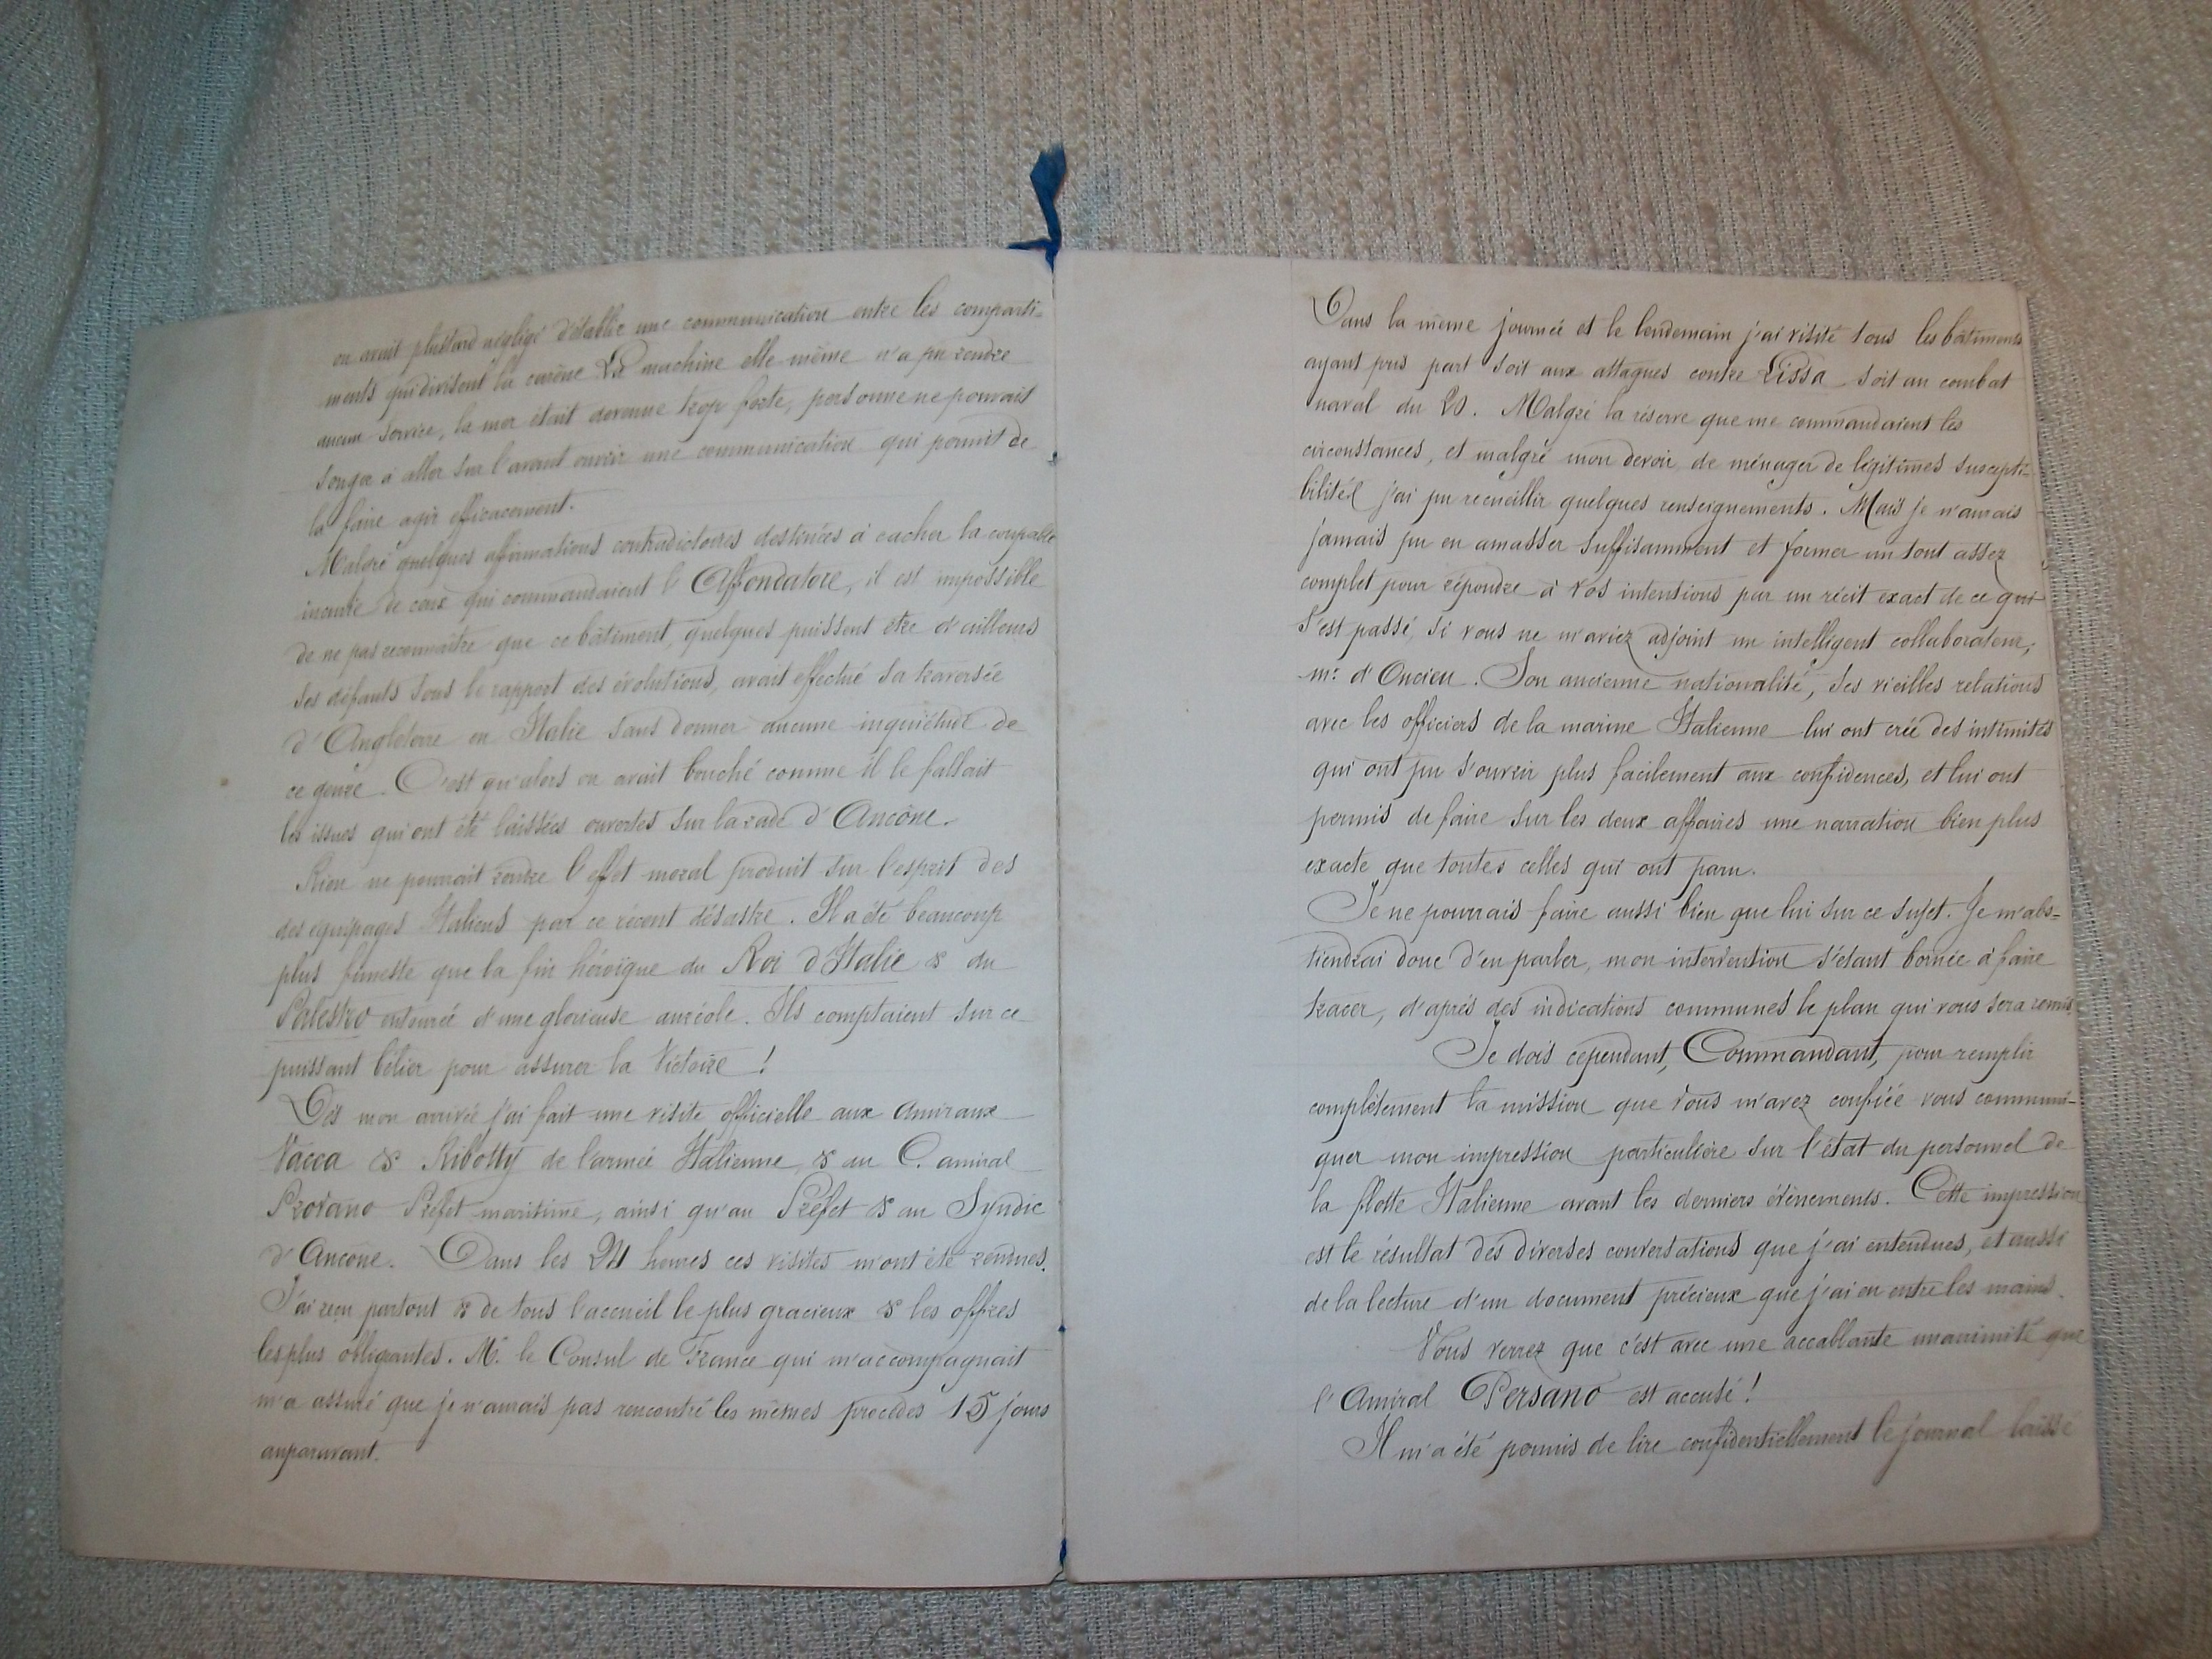 on avait plustard négligé d'établir une communication entre les comparti-
ments qui divisent la carène La machine elle même n'a pu rendre
aucun service, la mer était devenue trop forte, personne ne pouvait
songer à aller sur l'avant ouvrir une communication qui permit de
la faire agir efficacement.
Malgré quelques afirmations contradictoires destinées à cacher la coupable
incurie de ceux qui commandaient l'Affondatore, il est impossible
de ne pas reconnaître que ce bâtiment, quelques puissent être d'ailleurs
ses défauts sous le rapport des évolutions, avait effectué sa traversée
d'Angleterre en Italie sans donner aucune inquiétude de
ce genre. C'est qu'alors on avait bouché comme il le fallait
les issues qui ont été laissées ouvertes sur la rade d'Ancône.
Rien ne pourrait rendre l'effet moral produit sur l'esprit des
des équipages Italiens par ce récent désastre. Il a été beaucoup
plus funeste que la fin héroïque du Roi d'Italie & du
Palestro entourée d'une glorieuse auréole. Ils comptaient sur ce
puissant bélier pour assurer la Victoire !
Dès mon arrivée j'ai fait une visite officielle aux Amiraux
Vacca & Ribotty de l'armée Italienne, & au C. amiral
Provano Préfet maritime, ainsi qu'au Préfet & au Syndic
d'Ancône. Dans les 24 heures ces visites m'ont été rendues.
J'ai reçu partout & de tous l'accueil le plus gracieux & les offres
les plus obligeantes. M. le Consul de France qui m'accompagnait
m'a assuré que je n'aurais pas rencontré les mêmes procédés 15 jours
auparavant.
Dans la même journée et le lendemain j'ai visité tous les bâtiments
ayant pris part soit aux attaques contre Lissa soit au combat
naval du 20. Malgré la réserve que me commandaient les
circonstances, et malgré mon devoir de ménager de légitimes suscepti-
bilités j'ai pu recueillir quelques renseignements. Mais je n'aurais
jamais pu en amasser suffisamment et former un tout assez
complet pour répondre à vos intentions par un récit exact de ce qui
s'est passé, si vous ne m'aviez adjoint un intelligent collaborateur,
mr. d'Oncieu. Son ancienne nationalité, ses vieilles relations
avec les officiers de la marine Italienne lui ont créé des intimités
qui ont pu s'ouvrir plus facilement aux confidences, et lui ont
permis de faire sur les deux affaires une narration bien plus
exacte que toutes celles qui ont paru.
Je ne pourrais faire aussi bien que lui sur ce sujet. Je m'abs=
tiendrai donc d'en parler, mon intervention s'étant bornée à faire
tracer, d'après des indications communes le plan qui vous sera remis
Je dois cependant, Commandant, pour remplir
complètement la mission que vous m'avez confiée vous communi-
quer mon impression particulière sur l'état du personnel de
la flotte Italienne avant les derniers évènements. Cette impression
est le résultat des diverses conversations que j'ai entendues, et aussi
de la lecture d'un document précieux que j'ai eu entre les mains.
Vous verrez que c'est avec une accablante unanimité que
l'Amiral Persano est accusé !
Il m'a été permis de lire confidentiellement le journal laissé